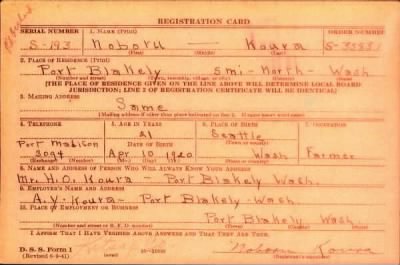 REGISTRATION CARD
SERIAL NUMBER 1. NAME (Print) ORDER NUMBER
S-193 Noboru — Koura
(First) (Middle) (Last)
2. PLACE OF RESIDENCE (Print)
Port Blakely 5mi-North- Wash
(Number and street) (Town, township, village, or city) (County) (State)
[THE PLACE OF RESIDENCE GIVEN ON THE LINE ABOVE WILL DETERMINE LOCAL BOARD
JURISDICTION; LINE 2 OF REGISTRATION CERTIFICATE WILL BE IDENTICAL]
3. MAILING ADDRESS
Same
[Mailing address if other than place indicated on line 2. If same insert word same]
4. TELEPHONE 5. AGE IN YEARS 6. PLACE OF BIRTH 7. OCCUPATION
21 Seattle
Port Madison DATE OF BIRTH
3094 Apr 10 1920 Wash Farmer
(Exchange) (Number) (Mo.) (Day) (Yr.) (State or country)
8. NAME AND ADDRESS OF PERSON WHO WILL ALWAYS KNOW YOUR ADDRESS
Mr. H.O. Koura — Port Blakely Wash.
9. EMPLOYER'S NAME AND ADDRESS
A.Y. Koura - Port Blakely - Wash.
10. PLACE OF EMPLOYMENT OR BUSINESS
Port Blakely Wash.
(Number and street or R. F. D. number) (Town) (County) (State)
I AFFIRM THAT I HAVE VERIFIED ABOVE ANSWERS AND THAT THEY ARE TRUE.
D. S. S. Form 1
(Revised 6-9-41) (over) Noboru Koura